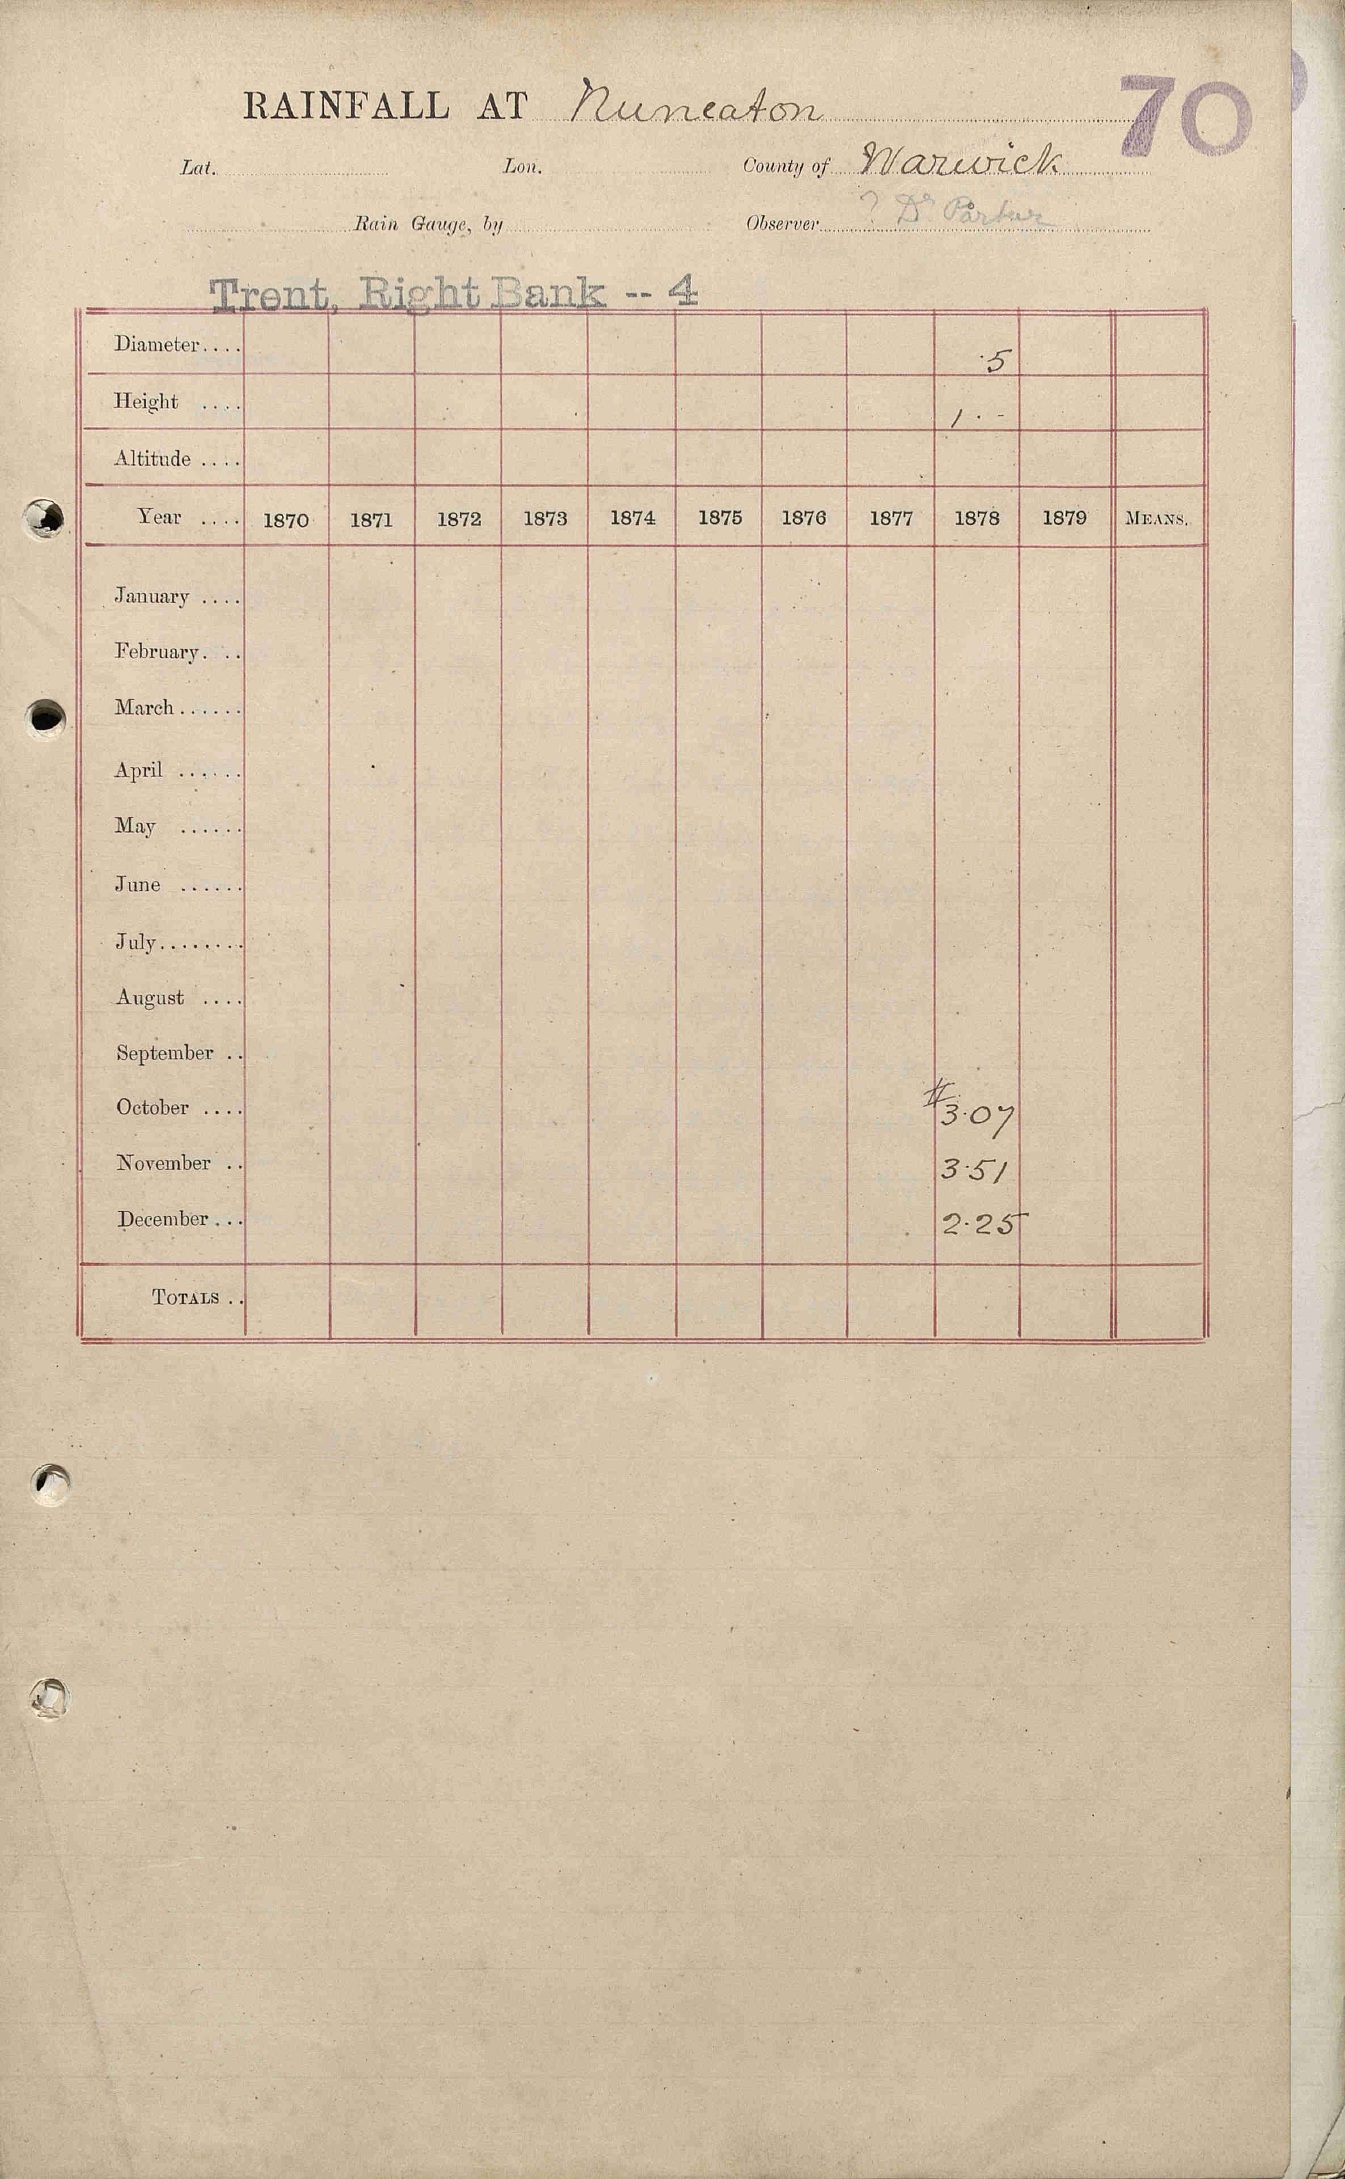 70
RAINFALL AT Nuneaton
Lat. Lon. County of Warwick
Rain Gauge, by Observer ? Dr
Trent, Right Bank -- 4
Diameter.... ·5
Height .... 1 · -
Altitude ....
Year .... 1870 1871 1872 1873 1874 1875 1876 1877 1878 1879 MEANS.
January ....
February. ..
March ......
April ......
May ......
June ......
July........
August ....
September ..
October .... # 3·07
November .. 3·51
December ... 2·25
TOTALS ..